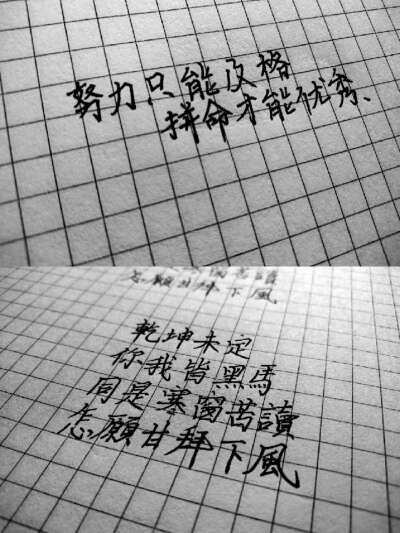 努力只能及格
拼命才能优秀、
怎願甘拜下風
乾坤未定
你我皆黑馬
同是寒窗苦讀
怎願甘拜下風